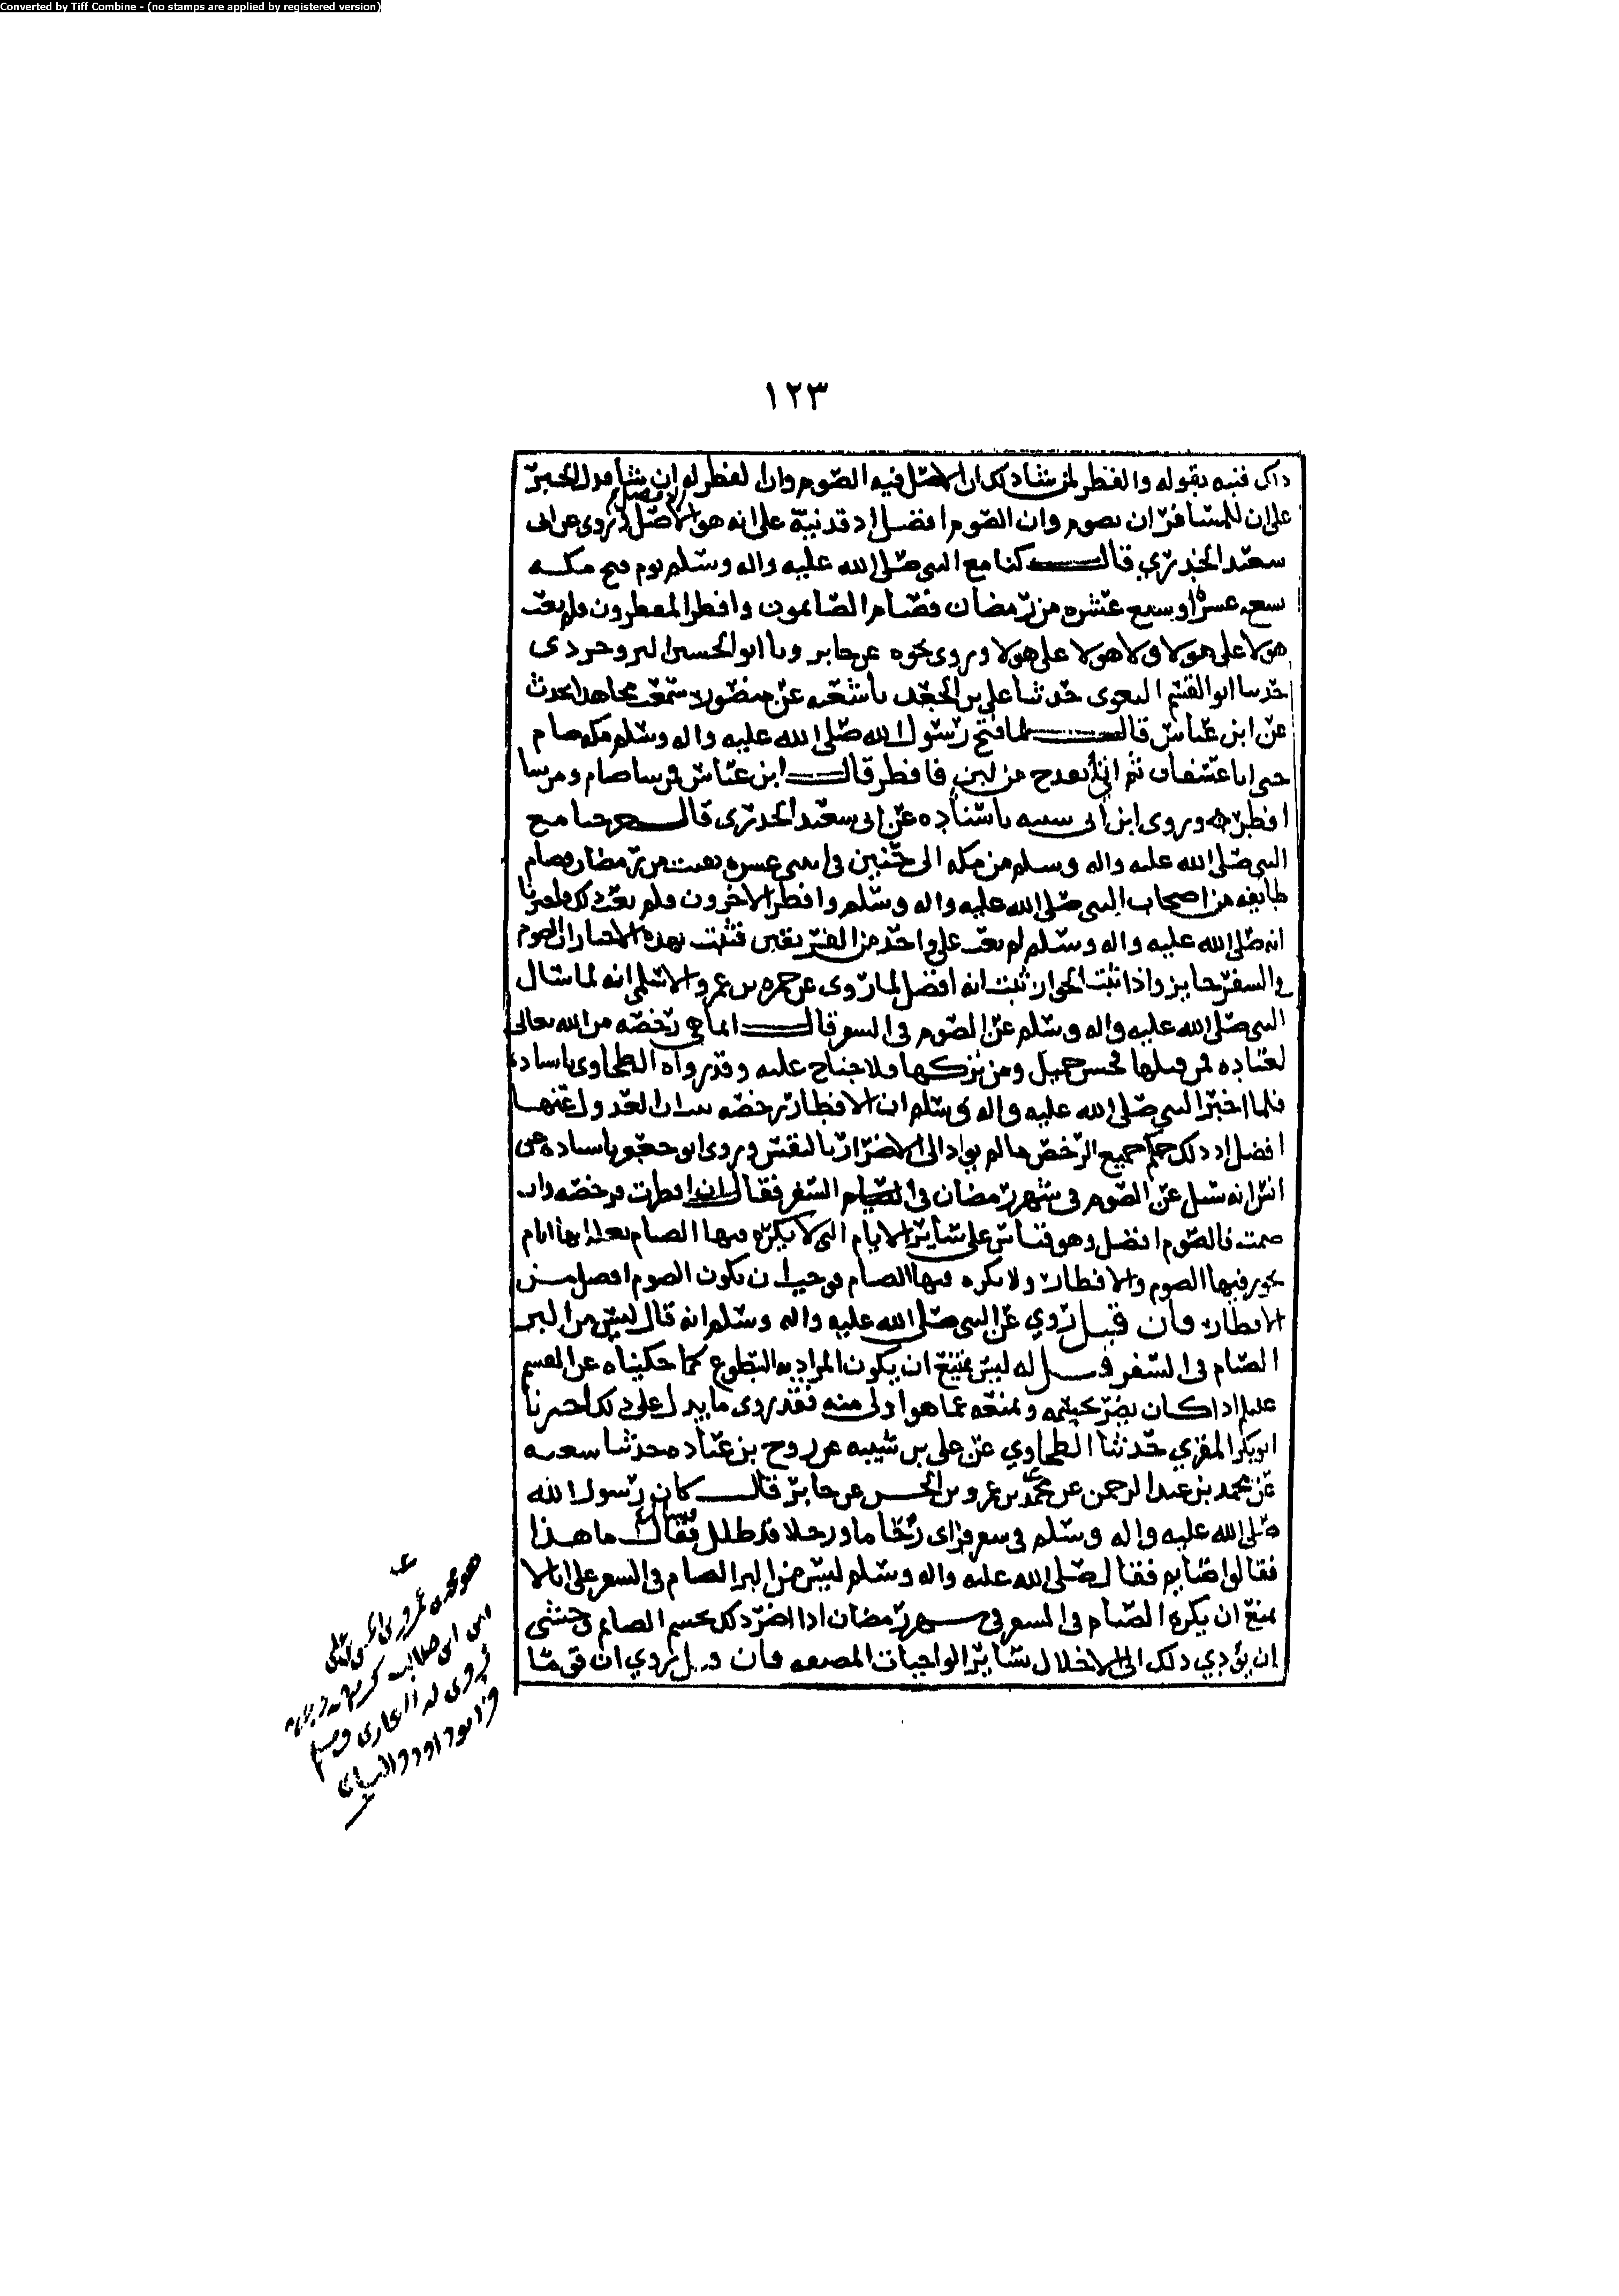 Converted by Tiff Combine - (no stamps are applied by registered version)
١٢٣
ذلك فنبه بقوله والفطر لمن شا ذلك ان الاصل فيه الصوم وان الفطر له ان شا فدل الخبر
على ان للمسافر ان يصوم وان الصوم افضل اذ قد نبه على انه هو الاصل وروى عن ابى
سعيد الخدري قال كنا مع النبي صلى الله عليه واله وسلم يوم فتح مكه
سبع عشرة من رمضان فصام الصائمون وافطر المفطرون فلم يعب
هولا على هولا ولا هولا على هولا وروى نحوه عن جابر ونا ابو الحسين البروجردى
حدثنا ابو القسم البغوى حدثنا على بن الجعد نا شعبه عن منصور سمعت مجاهدا يحدث
عن ابن عباس قال لما فتح رسول الله صلى الله عليه واله وسلم مكه صام
حتى اتا عسفان ثم اتى بقدح من لبن فافطر قال ابن عباس فمن شا صام ومن شا
افطر وروى ابن ابى شيبه باسناده عن ابى سعيد الخدرى قال خرجنا مع
النبى صلى الله عليه واله وسلم من مكه الى حنين فى اثنى عشره بقيت من رمضان فصام
طايفه من اصحاب النبى صلى الله عليه واله وسلم وافطر الاخرون فلم يعب ذلك
انه صلى الله عليه واله وسلم لم يعب على واحد من الفريقين فثبت بهذه الاخبار ان الصوم
في السفر جايز واذا ثبت الجواز ثبت انه افضل لما روى عن حمزه بن عمرو الاسلمي انه لما سال
النبى صلى الله عليه واله وسلم عن الصوم فى السفر قال انما هي رخصه من الله تعالى
لعباده فمن قبلها فحسن جميل ومن تركها فلا جناح عليه وقد رواه الطحاوى باسناده
فلما اخبر النبى صلى الله عليه واله وسلم ان الافطار رخصه
افضل اذ ذلك حكم جميع الرخص ما لم يود الى الاضرار بالنفس وروى ابو جعفر باسناده عن
انس انه سئل عن الصوم فى شهر رمضان فى السفر فقال ان افطرت فرخصه وان
صمت فالصوم افضل وهو قياس على سائر الايام التى لا يكره فيها الصيام بعله انها ايام
يجوز فيها الصوم والافطار ولا يكره فيها الصيام فوجب ان يكون الصوم افضل من
الافطار فان قيل روي عن النبى صلى الله عليه واله وسلم انه قال ليس من البر
الصيام فى السفر قيل له ليس يمتنع ان يكون المراد به التطوع كما حكيناه عن القسم
عليلم اذا كان يضر بجسمه ويمنعه عما هو اولى منه فقد روى ما يدل على ذلك اخبرنا
ابو بكر المقري حدثنا الطحاوي عن على بن شيبه عن روح بن عباده حدثنا شعبه
عن محمد بن عبد الرحمن عن محمد بن عمرو بن الحسن عن جابر قال كان رسول الله
صلى الله عليه واله وسلم فى سفر فراى زحاما ورجلا قد ظلل فقال ما هذا
فقالوا صايم فقال صلى الله عليه واله وسلم ليس من البر الصيام فى السفر على انا لا
نمنع ان يكره الصيام فى السفر فى شهر رمضان اذا اضر ذلك بجسم الصايم وخشي
ان يؤدي ذلك الى الاخلال بسائر الواجبات المضيقه فان قيل روي ان قوما
هو محمد بن عمرو بن الحسن بن على
بن ابى طالب
روى له البخارى ومسلم
وابو داود والنسائى